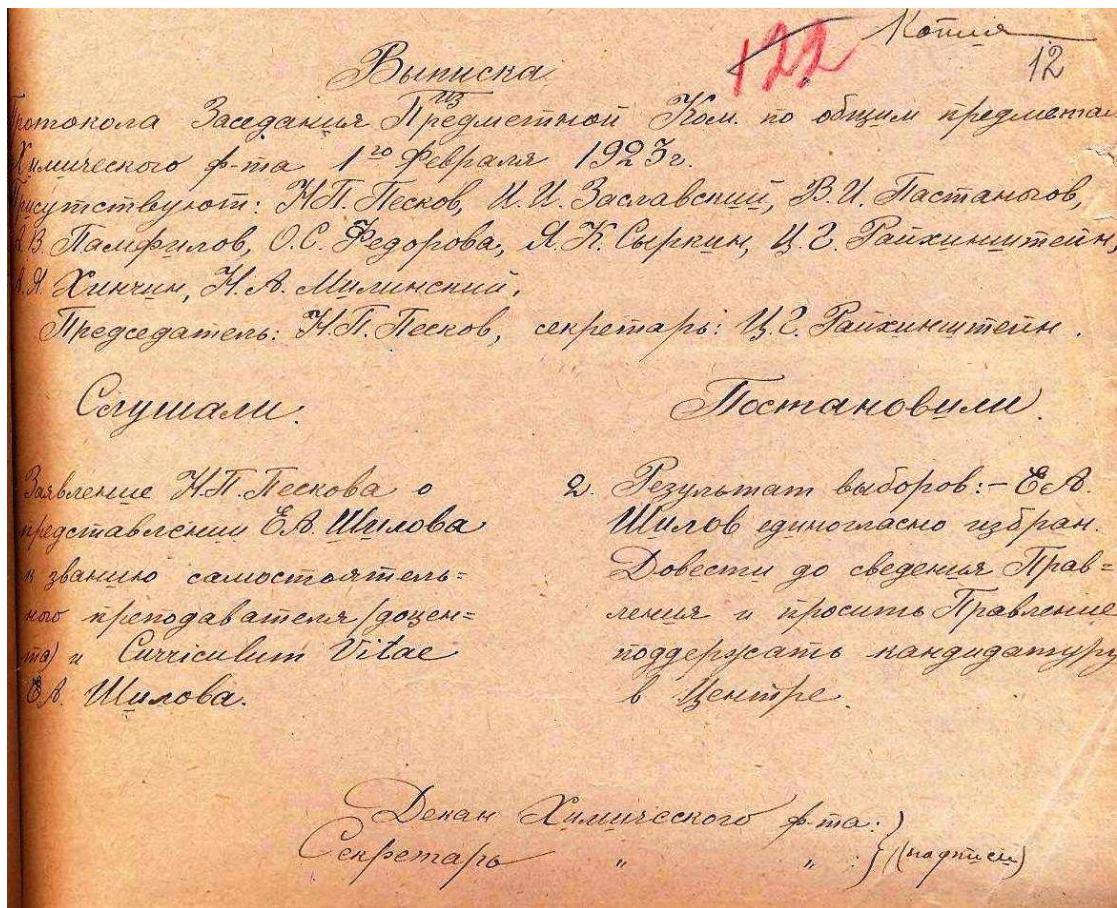 Копия
122
12
Выписка
из
Протокола Заседания Предметной Ком. по общим предметам
Химического ф-та 1го Февраля 1923г.
Присутствуют: Н.П. Песков, И.И. Заславский, В.И. Пастаногов,
А.В. Памфилов, О.С. Федорова, Я.К. Сыркин, Ц.Г. Райхинштейн,
А.Я. Хинчин, Н.А. Милинский,
Председатель: Н.П. Песков, секретарь: Ц.Г. Райхинштейн.
Слушали. Постановили.
Заявление Н.П. Пескова о
представлении Е.А. Шилова
к званию самостоятель=
ного преподавателя (доцен=
та) и Curriculum Vitae
Е.А. Шилова.
2. Результат выборов: – Е.А.
Шилов единогласно избран.
Довести до сведения Прав=
ления и просить Правление
поддержать кандидатуру
в Центре.
Декан Химического ф-та:)
Секретарь " " :} (подписи)